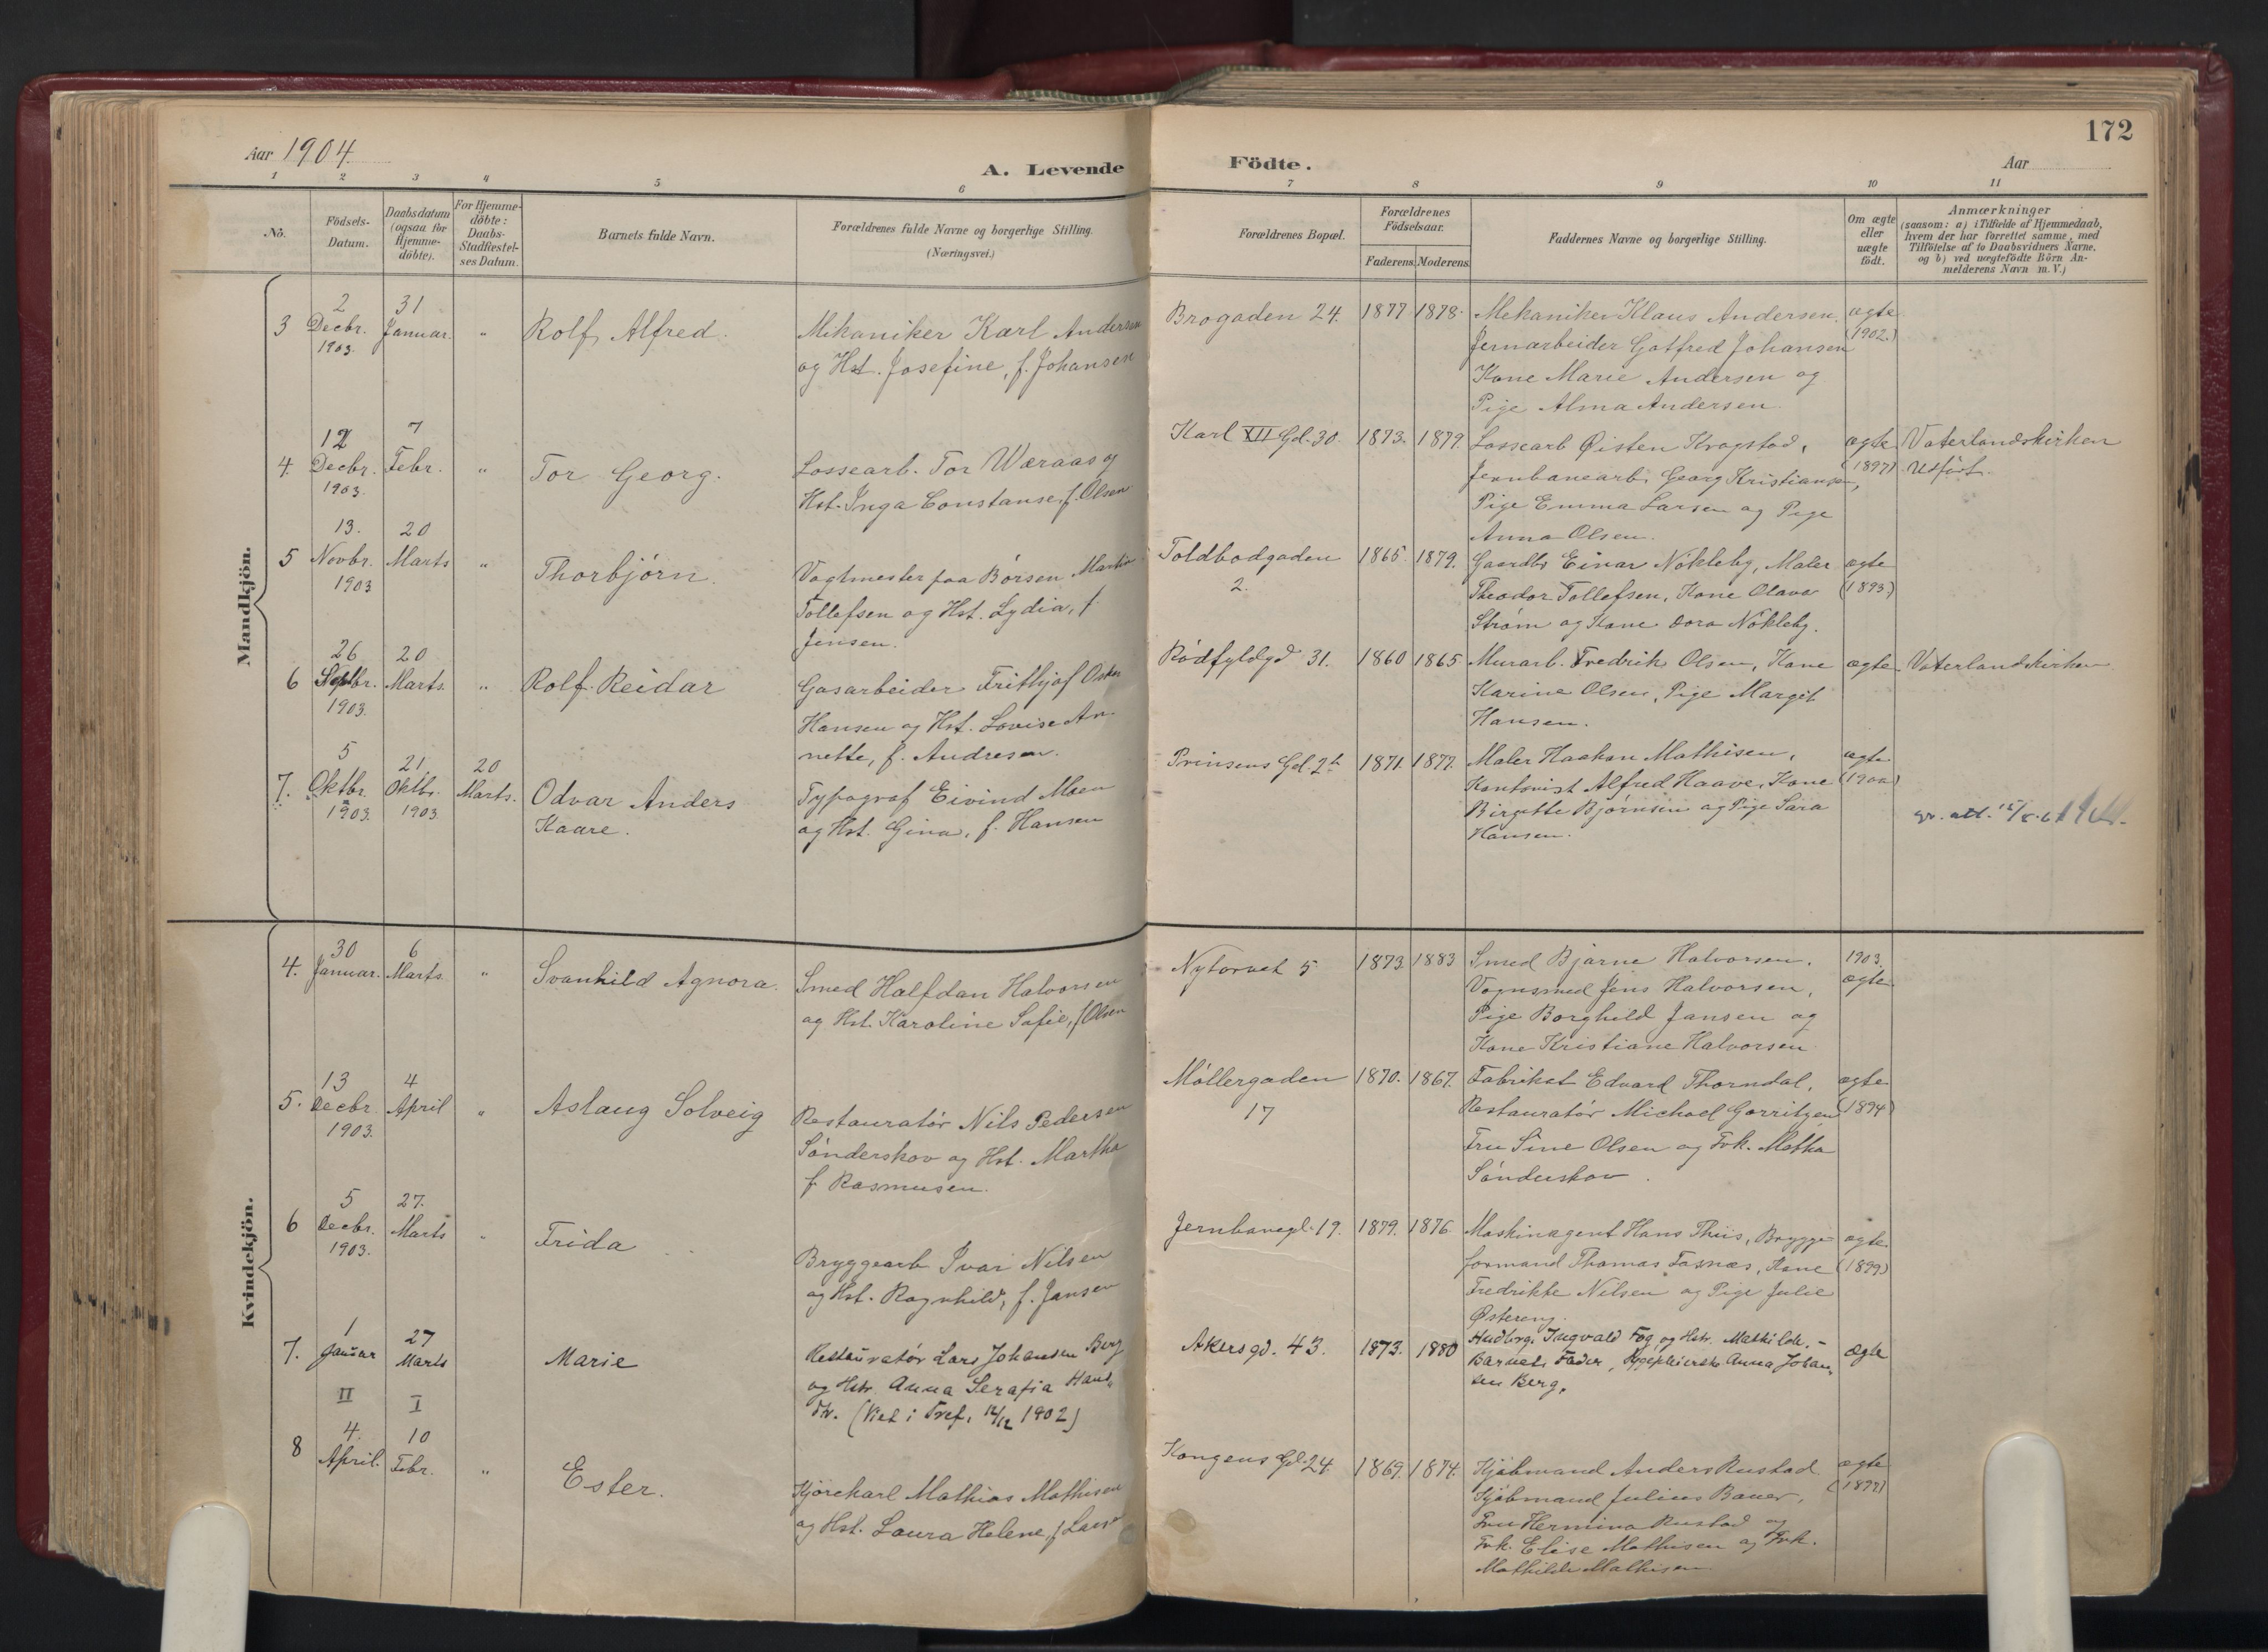 172
Aar 1904.
A. Levende Födte.
Aar
1 2 3 4 5 6 7 8 9 10 11
No.
Födsels-Datum.
Daabsdatum (ogsaa for Hjemme-döbte).
For Hjemme-döbte: Daabs-Stadfæstel-ses Datum.
Barnets fulde Navn.
Forældrenes fulde Navne og borgerlige Stilling.
(Næringsvei.)
Forældrenes Bopæl.
Forældrenes Födselsaar.
Faderens. Moderens.
Faddernes Navne og borgerlige Stilling.
Om ægte eller uægte födt.
Anmærkninger
(saasom: a) i Tilfælde af Hjemmedaab, hvem der har forrettet samme, med Tilföielse af to Daabsvidners Navne, og b) ved uægtefödte Börn An-melderens Navn m. V.)
Mandkjön.
3
2 Decbr. 1903.
31 Januar.
"
Rolf Alfred.
Mekaniker Karl Andersen
og Hst. Josefine, f. Johansen
Brogaden 24.
1877 1878.
Mekaniker Klaus Andersen.
Jernarbeider Gotfred Johansen
Kone Marie Andersen og
Pige Alma Andersen
ægte
(1902.)
4.
12 Decbr. 1903.
7 Febr.
"
Tor Georg.
Lossearb. Tor Waraas og
Hst. Inga Constanse, f. Olsen
Karl XII Gd. 30.
1873. 1879.
Lossearb Øisten Krogstad,
Jernbanearb. Georg Kristiansen,
Pige Emma Larsen og Pige
Anna Olsen.
ægte
(1897)
Vaterlandskirken
Utført.
5
13. Novbr. 1903
20 Marts
"
Thorbjørn.
Vagtmester paa Børsen Martin
Tollefsen og Hst. Lydia, f.
Jensen.
Toldbodgaden
2.
1865. 1879.
Gaardbr Einar Nøkleby, Maler
Theodor Tollefsen, Kone Olava
Strøm og Kone Dora Nøkleby.
ægte
(1893.)
6
26 Septbr. 1903.
20 Marts.
"
Rolf Reidar
Gasarbeider Frithjof Oskar
Hansen og Hst. Lovise An-
nette, f. Andresen.
Rødfyldgd 31.
1860 1865
Murarb. Fredrik Olsen, Kone
Karine Olsen, Pige Margit
Hansen.
ægte
Vaterlandskirken
7.
5 Oktbr. 1903.
21 Oktbr. 1903
20 Marts.
Odvar Anders
Kaare.
Typograf Eivind Moen
og Hst. Gina, f. Hansen
Prinsens Gd. 2b
1871. 1877.
Maler Haakon Mathisen,
Kontorist Alfred Haave, Kone
Birgitte Bjørnsen og Pige Sara
Hansen.
ægte
(1900)
Kvindekjön.
4.
30 Januar.
6 Marts.
"
Svanhild Agnora.
Smed Halfdan Halvorsen
og Hst. Karoline Sofie, f Olsen
Nytorvet 5
1873. 1883
Smed Bjarne Halvorsen.
Vognsmed Jens Halvorsen,
Pige Borghild Jansen og
Kone Kristiane Halvorsen
1903.
ægte
5.
13 Decbr. 1903.
4 April
"
Aslaug Solveig
Restauratør Nils Pedersen
Sønderskov og Hst. Martha
f Rasmusen.
Møllergaden
17
1870. 1867.
Fabrikat Edvard Thorndal,
Restauratør Michael Gorritzen
Fru Sine Olsen og Frk. Metha
Sønderskov.
ægte
(1894)
6
5 Decbr. 1903.
27. Marts
"
Frida
Bryggearb Ivar Nilsen
og Hst. Ragnhild, f. Jansen
Jernbanegd. 19.
1879. 1876.
Maskinagent Hans Thiis, Brygge-
formand Thomas Fasnæs, Kone
Fredrikke Nilsen og Pige Julie
Østereng.
ægte
(1899)
7.
1 Januar
27 Marts
Marie
Restauratør Lars Johansen Berg
og Hstr. Anna Serafia Hans.
dtr. (Viet i Tref. 12/12 1902)
Akersgd. 43.
1873. 1880
Hndlrg. Ingvald Fog og Hstr. Mathilde. -
Barnets Fader, Sygepleierske Anna Johan-
sen Berg.
ægte
II I
8
4. April.
10 Febr.
"
Ester.
Kjørekarl Mathias Mathisen
og Hst. Laura Helene, f Larsen
Kongens Gd. 24.
1869. 1874.
Kjøbmand Anders Rustad
Kjøbmand Julius Bauer,
Fru Hermina Rustad og
Frk. Elise Mathisen og Frk.
Mathilde Mathisen
ægte
(1897)